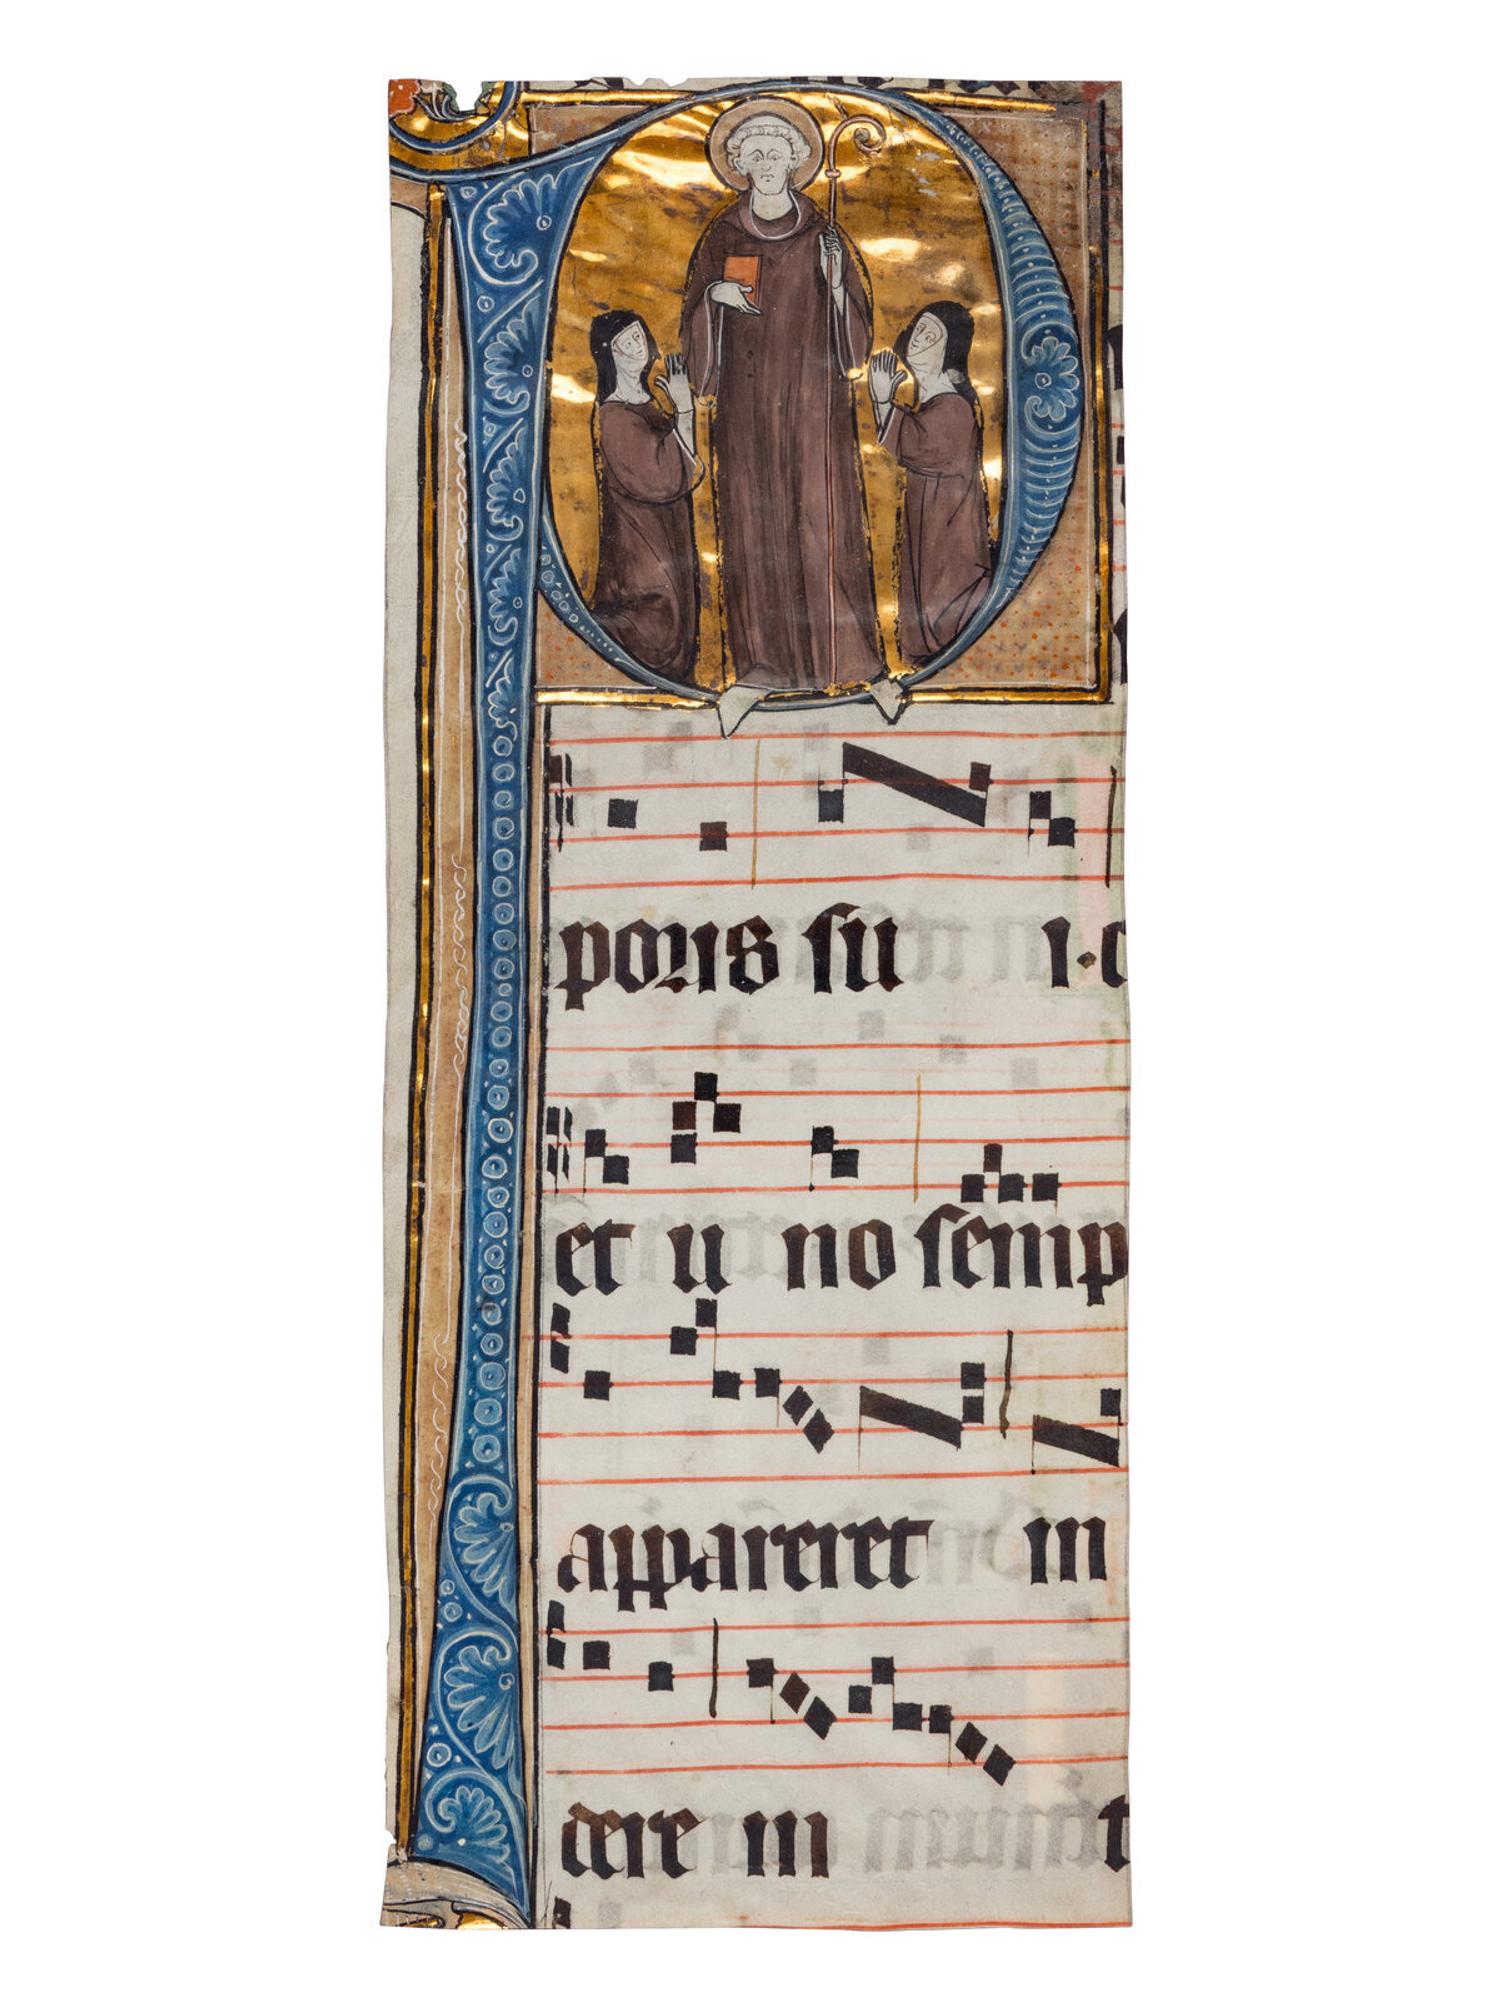 poris su i. c
et u no semp
appareret in
dere in t